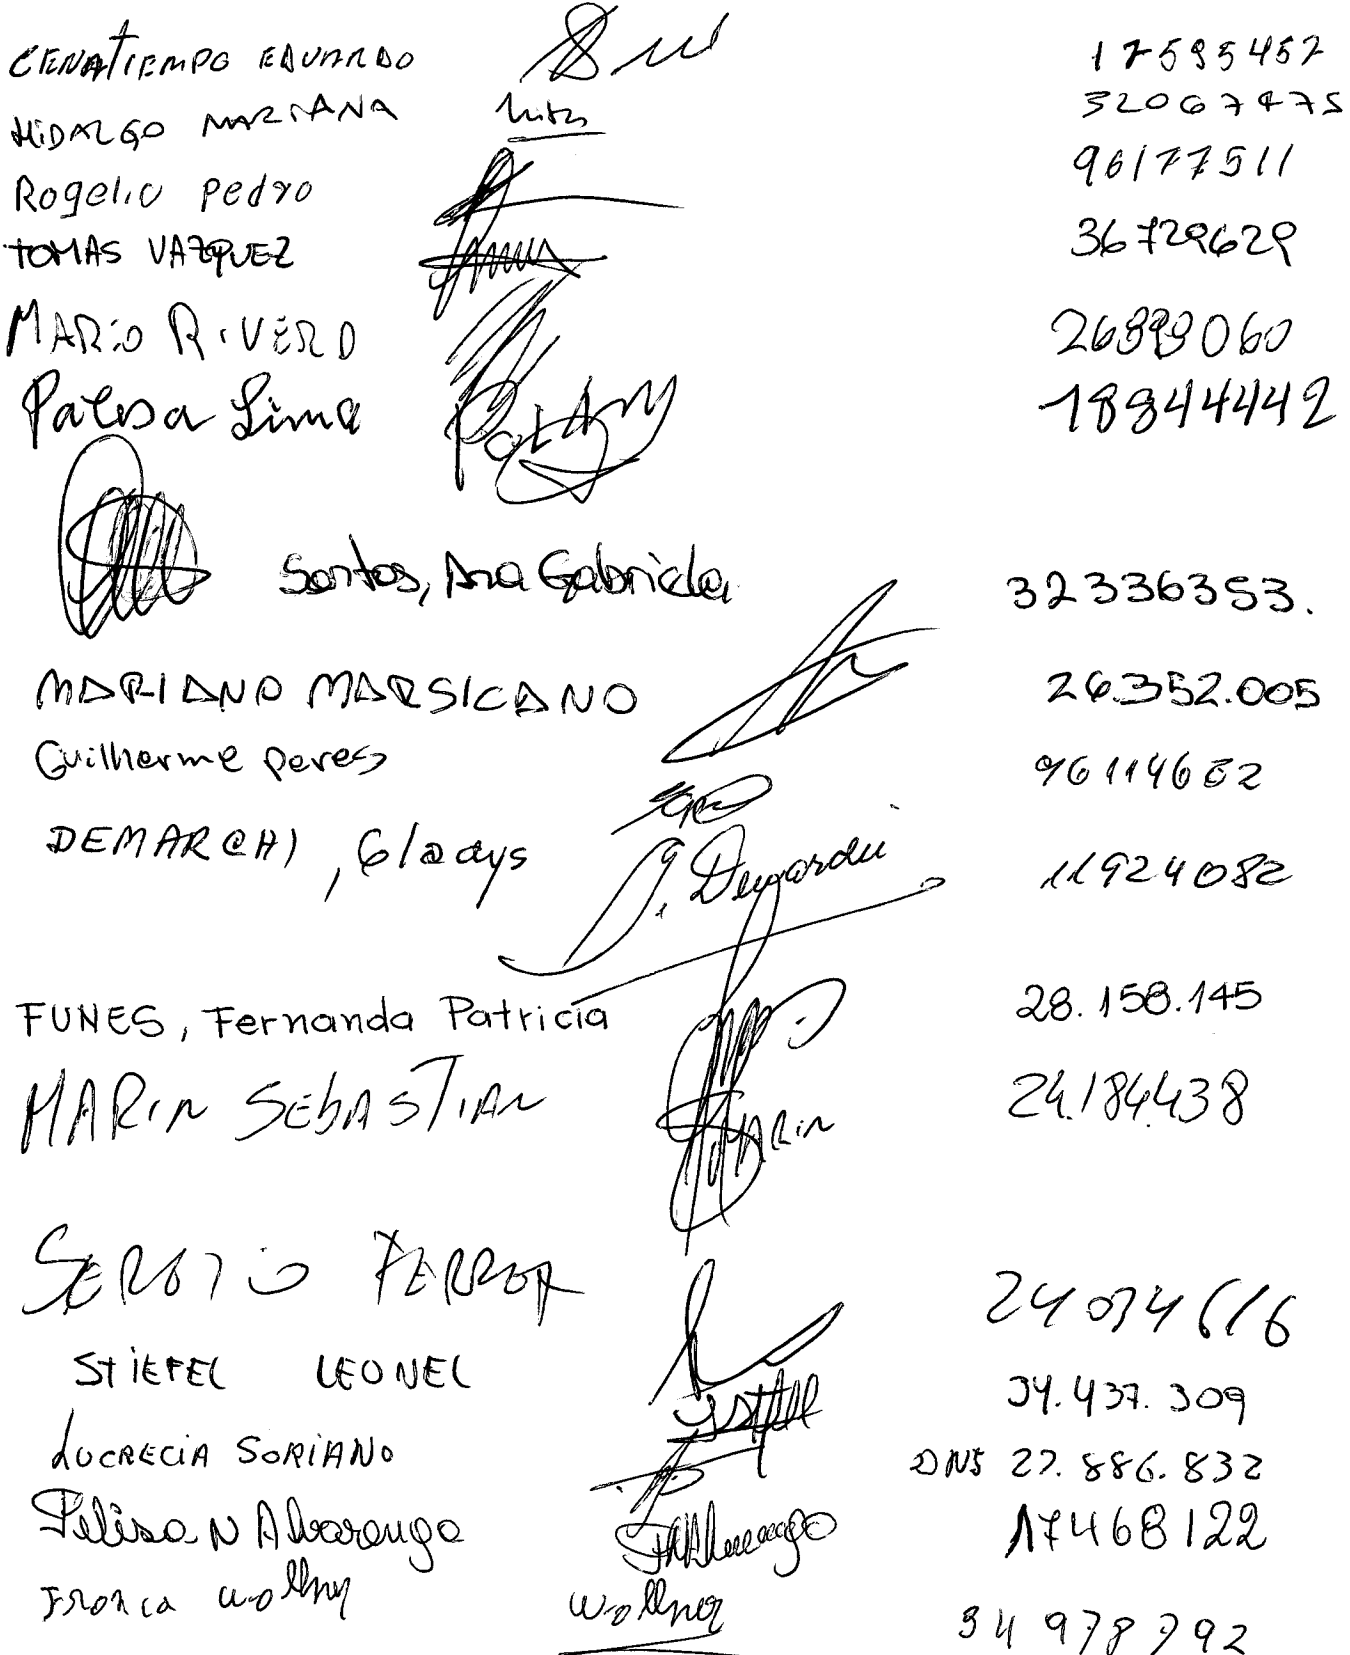 CENATIEMPO EDUARDO 17595457
HIDALGO MARIANA 32067475
Rogelio Pedro 96177511
TOMAS VAZQUEZ 36729629
MARIO RIVERO 26898060
Lima 18844442
Santos, Ana Gabriela 32336353.
MARIANO MARSICANO 26.352.005
Guilherme Peres 96114682
DEMARCHI, Gladys G. Demarchi 11924082
FUNES, Fernanda Patricia 28.158.145
MARIN SEBASTIAN MARIN 24.184.438
SERGIO FERRER 24034616
STIEFEL LEONEL 34.437.309
LUCRECIA SORIANO DNI 27.886.832
Felisa N Alvarenga 17468122
Franca Wollner Wollner 34978792